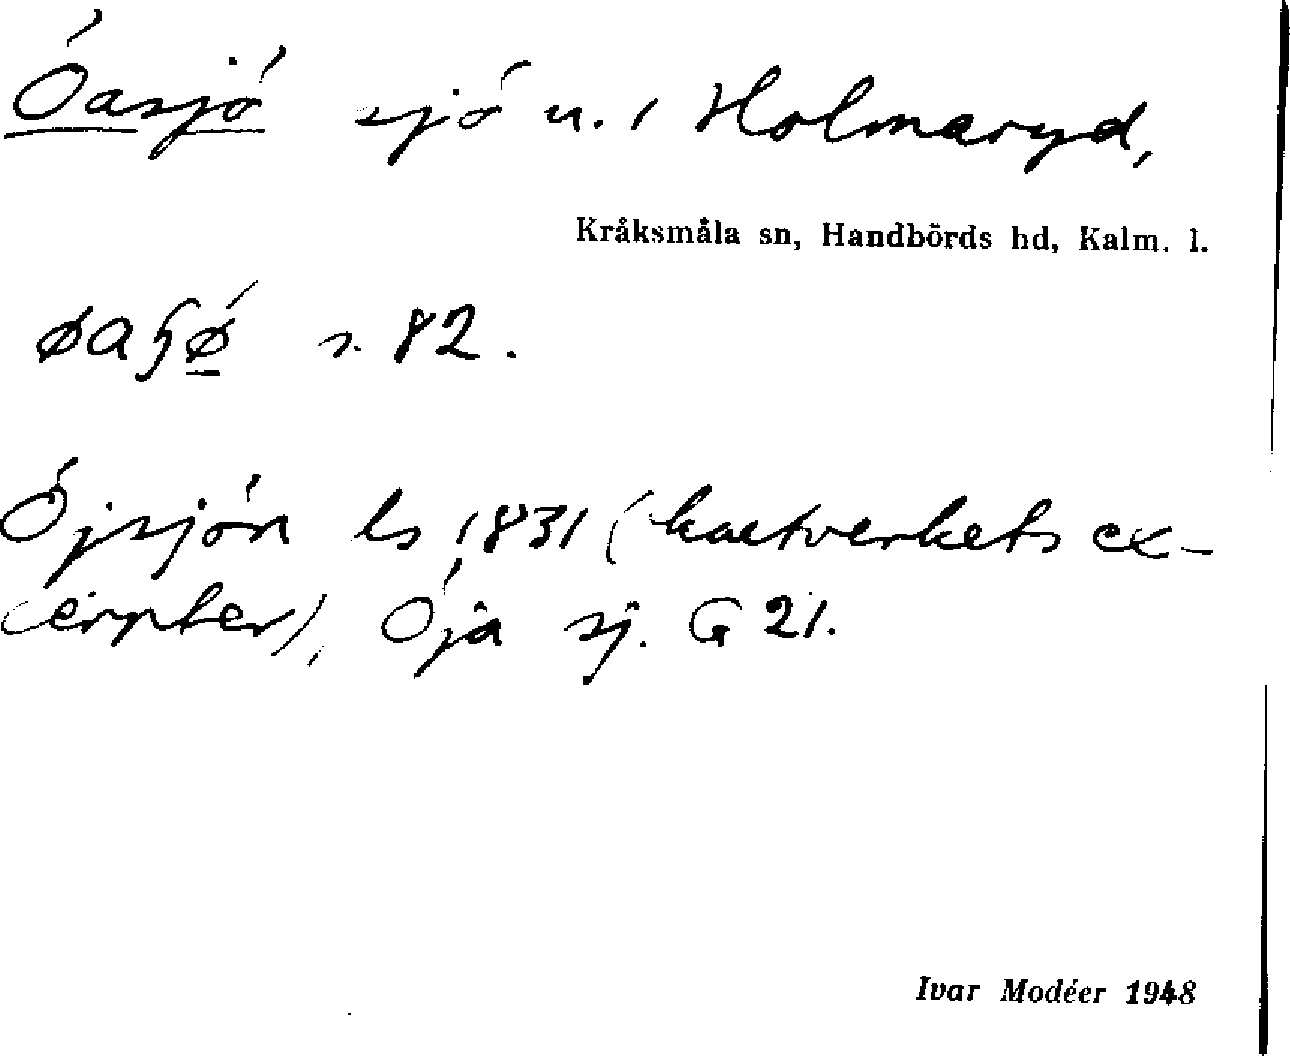 Öasjö sjö n. i Holmaryd,
Kråksmåla sn, Handbörds hd, Kalm. l.
s. 82.
Öjsjön ls 1831 (kartverkets ex-
cerpter), Öja sj. G 21.
Ivar Modéer 1948